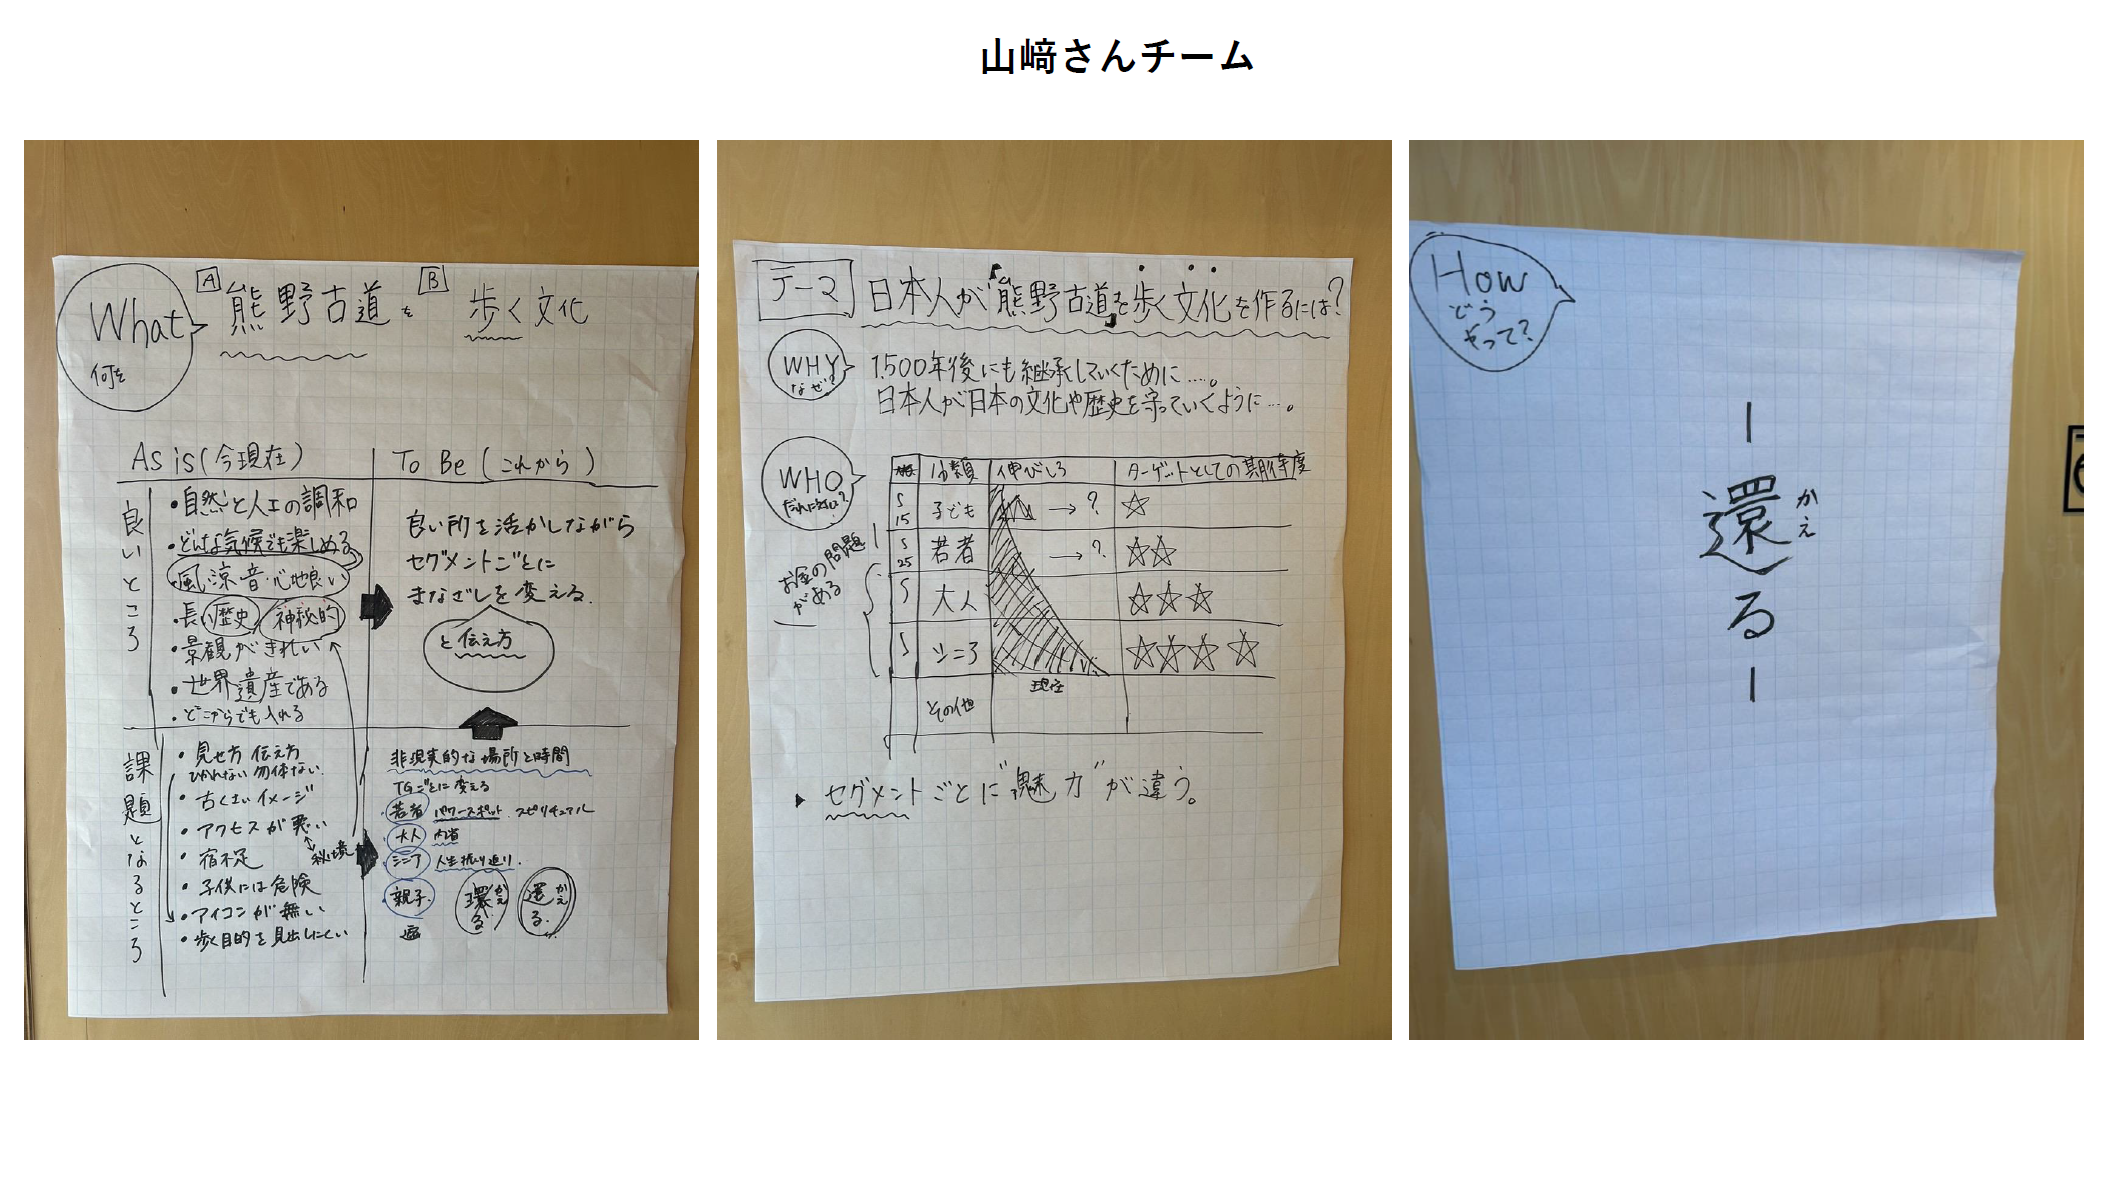 山﨑さんチーム
What
何を
A 熊野古道を B 歩く文化
As is(今現在)
To Be(これから)
良いところ
・自然と人工の調和
・どんな気候でも楽しめる
・風・涼・音・心地良い
・長い歴史 神秘的
・景観がきれい
・世界遺産である
・どこからでも入れる
良い所を活かしながら
セグメントごとに
まなざしを変える.
と伝え方
課題となるところ
・見せ方 伝え方
ひかれない 勿体ない.
・古くさいイメージ
・アクセスが悪い
秘境
・宿不足
・子供には危険
・アイコンが無い
・歩く目的を見出しにくい
非現実的な場所と時間
TGごとに変える
・若者 パワースポット スピリチュアル
・大人 内省
・シニア 人生振り返り.
・親子.
環る かえ
還る. かえ
テーマ
日本人が「熊野古道」を歩く文化を作るには?
WHY
なぜ?
1,500年後にも継承していくために….。
日本人が日本の文化や歴史を守っていくように….。
WHO
だれに対い?
分類 伸びしろ ターゲットとしての期待度
S 15 子ども → ? ☆
S 25 若者 → ? ☆☆
S 大人 ☆☆☆
S シニア ☆☆☆☆
現在
その他
お金の問題
がある
▶ セグメントごとに"魅力"が違う。
How
どう
やって?
ー還るー
かえ